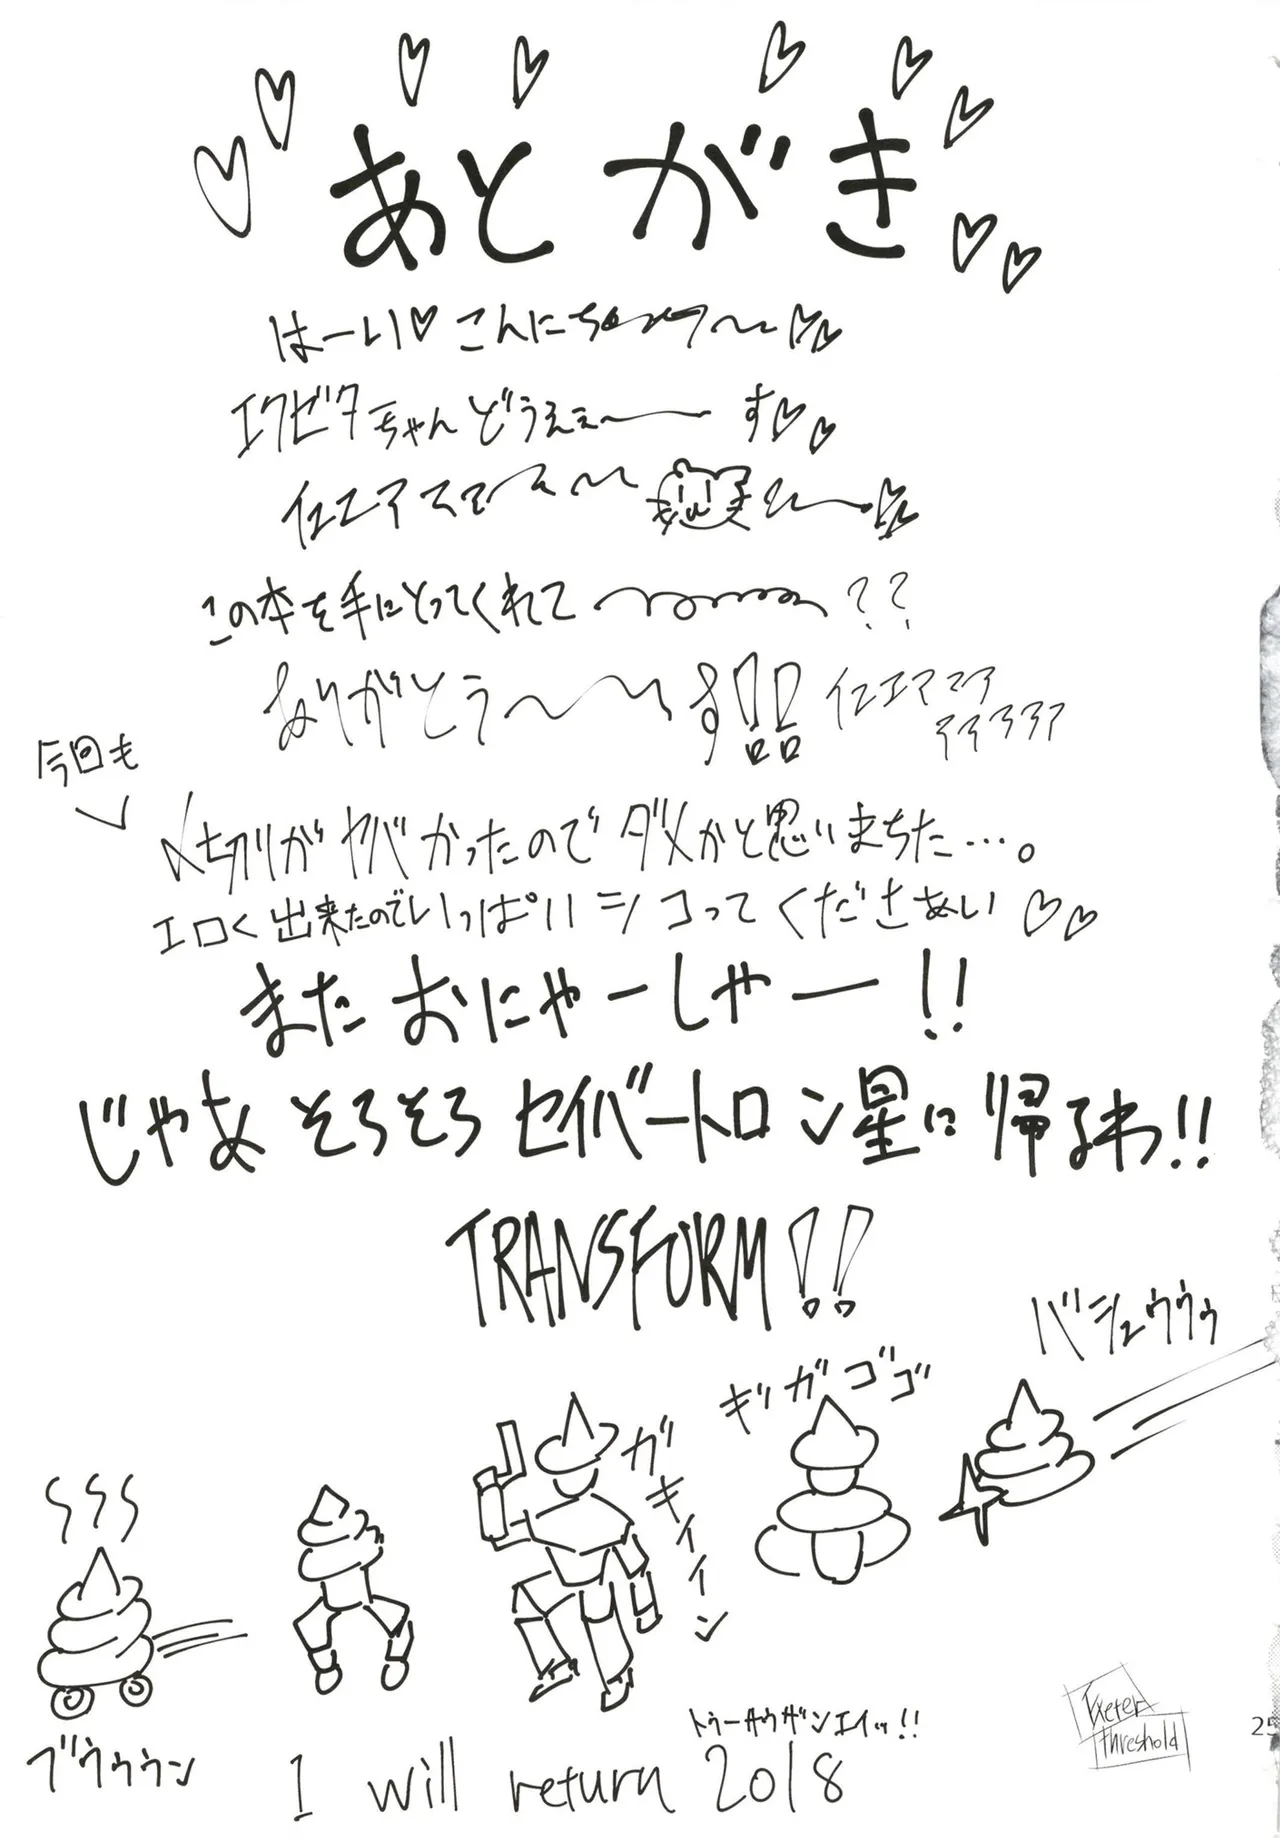 あとがき
はーい♡ こんにち
エクゼタちゃんどうえぇ〜 す♡♡
イエエア
この本を手にとってくれて ??
ありがとう〜〜す!! イエエア
今回も
〆切りがヤバかったのでダメかと思いまちた…。
エロく出来たのでいっぱいシコってくださあい♡♡
またおにゃーしゃー!!
じゃあそろそろセイバートロン星に帰るわ!!
TRANSFORM!!
バシュゥゥゥ
ギリガゴゴ
ガキイイイン
ブウゥゥン
トゥーサウザンエイッ!!
I will return 2018
Exeter threshold
25